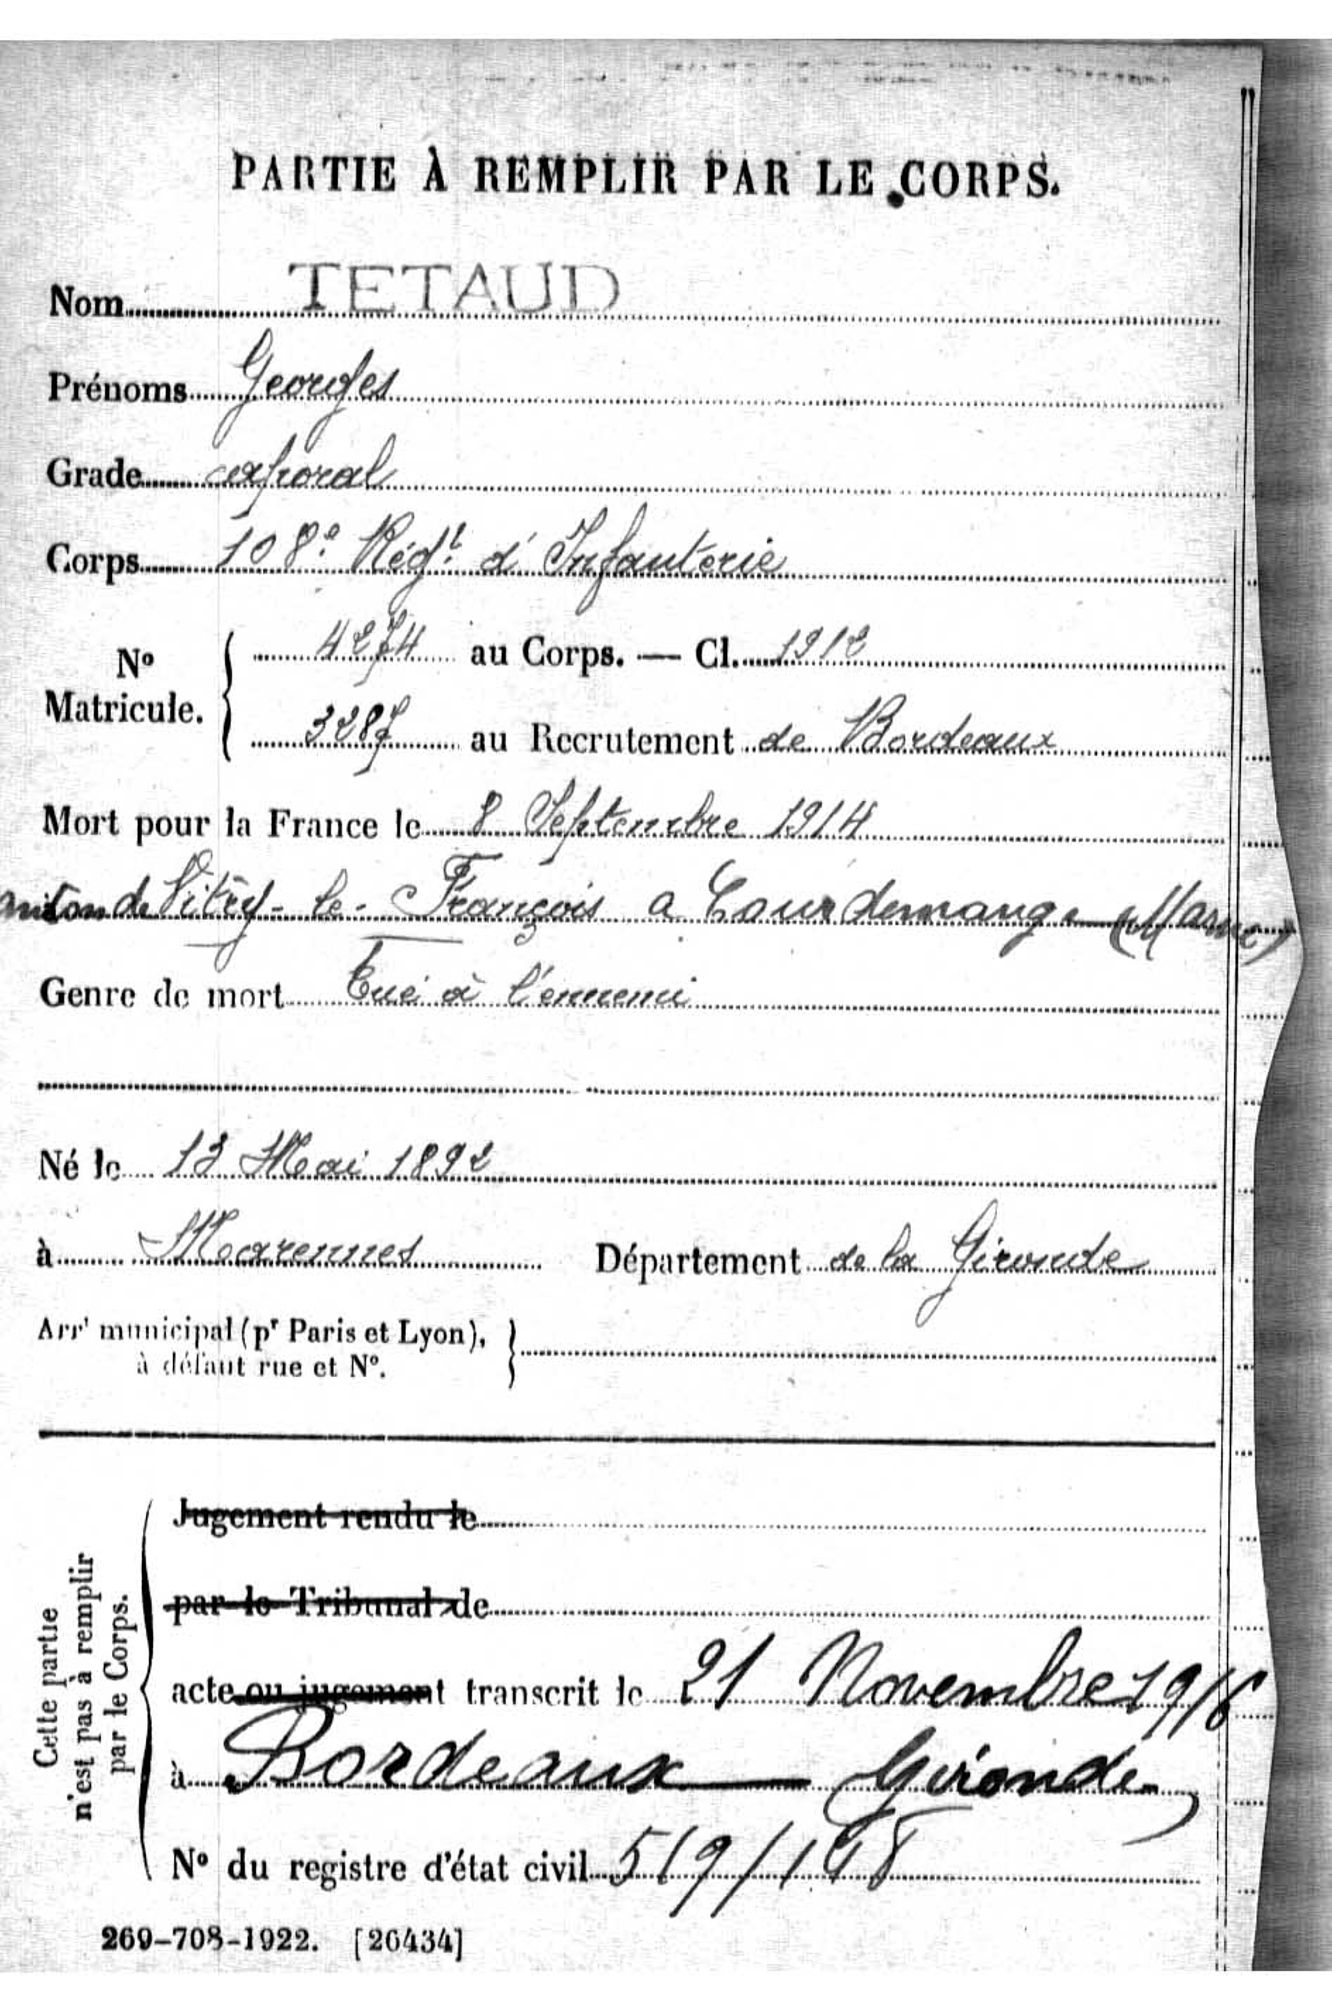 PARTIE À REMPLIR PAR LE CORPS.
Nom TETAUD
Prénoms Georges
Grade caporal
Corps 108e Régt d'Infanterie
No Matricule. 4274 au Corps. — Cl. 1912
3287 au Recrutement de Bordeaux
Mort pour la France le 8 Septembre 1914
anton de Vitry-le-François a Courdemange (Marne)
Genre de mort Tué à l'ennemi
Né le 13 Mai 1892
à Marennes Département de la Gironde
Arrt municipal (pr Paris et Lyon),
à défaut rue et No.
Cette partie
n'est pas à remplir
par le Corps.
Jugement rendu le
par le Tribunal de
acte ou jugement transcrit le 21 Novembre 1916
à Bordeaux Gironde
No du registre d'état civil 519/148
269-708-1922. [26434]